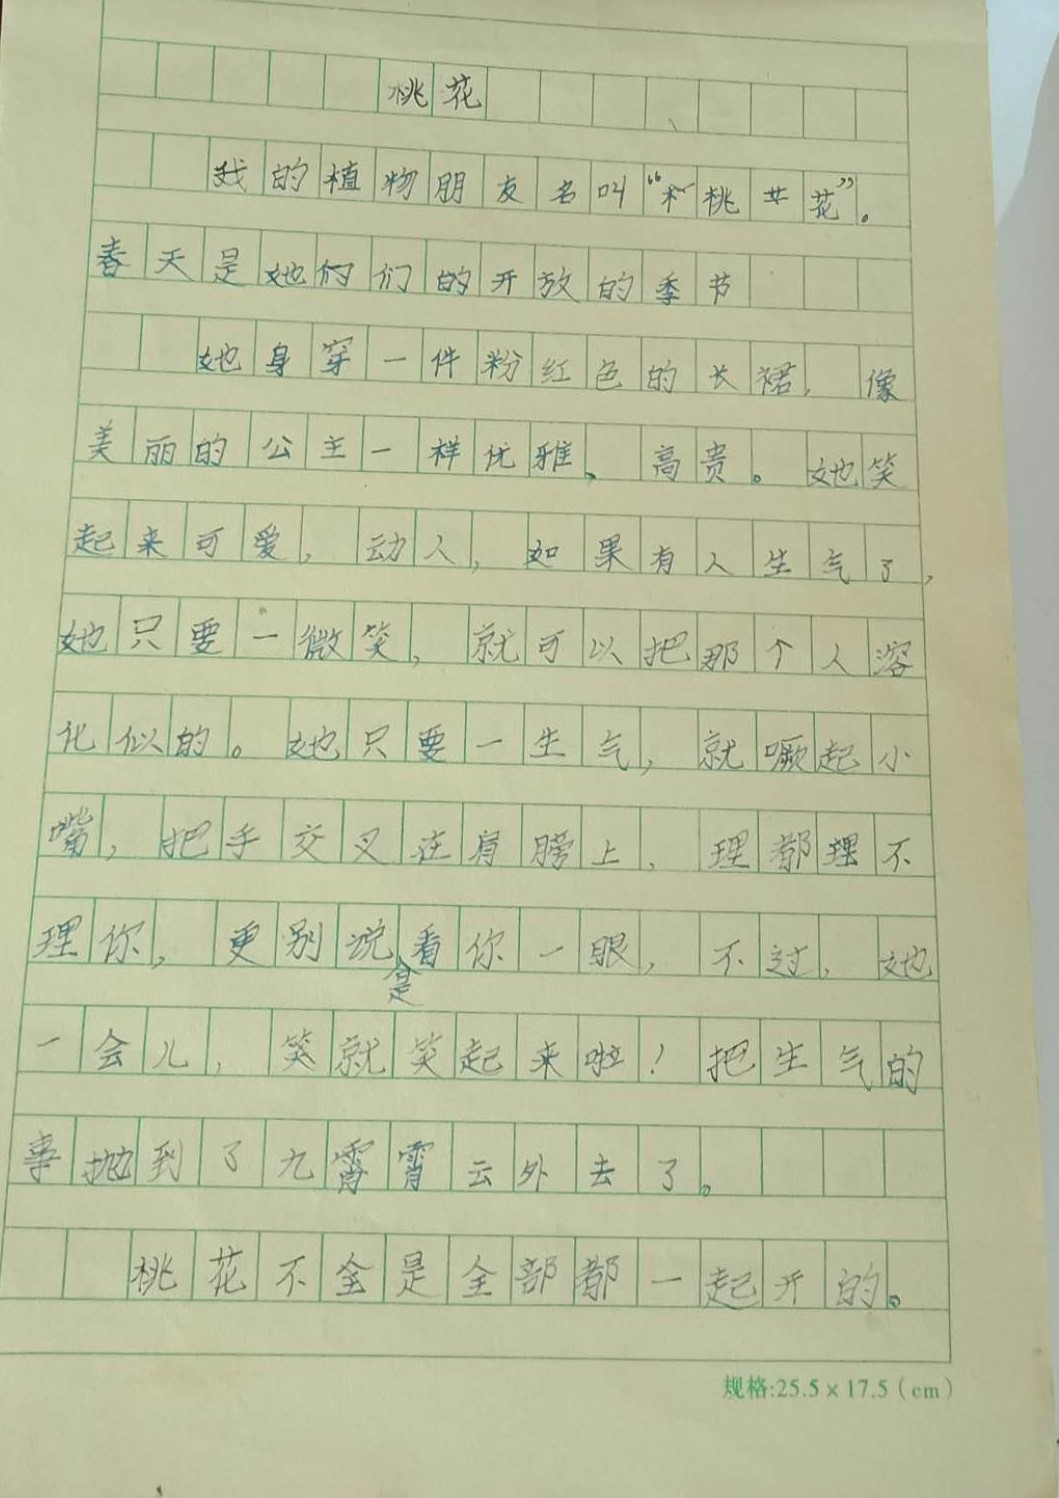 桃花
我的植物朋友名叫“桃花”。
春天是她们们的开放的季节
她身穿一件粉红色的长裙，像
美丽的公主一样优雅、高贵。她笑
起来可爱，动人，如果有人生气了，
她只要一微笑，就可以把那个人溶
化似的。她只要一生气，就噘起小
嘴，把手交叉在肩膀上，理都理不
理你，更别说是看你一眼，不过，她
一会儿，笑就笑起来啦！把生气的
事抛到了九霄霄云外去了。
桃花不全是全部都一起开的。
规格:25.5×17.5(cm)